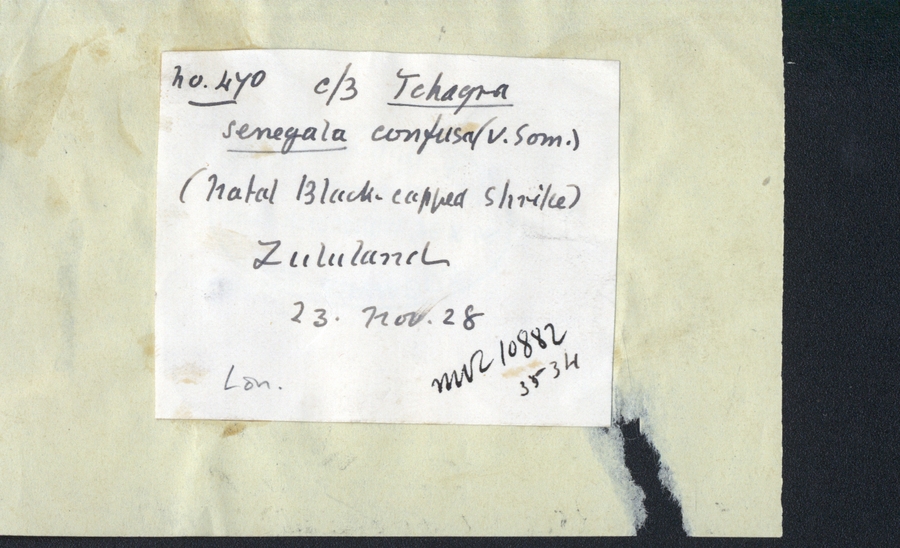 no. 470 c/3 Tchagra
senegala confusa (V. Som.)
(Natal Black-capped Shrike)
Zululand
23. Nov. 28
Lon.
MVZ 10882
3534